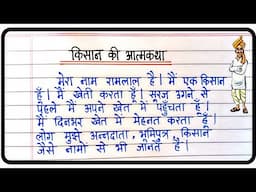 किसान की आत्मकथा
मेरा नाम रामलाल है। मैं एक किसान
हूँ। मैं खेती करता हूँ। सूरज उगने से
पहले मैं अपने खेत में पहुँचता हूँ।
मैं दिनभर खेत में मेहनत करता हूँ।
लोग मुझे अन्नदाता, भूमिपुत्र, किसान
जैसे नामों से भी जानते है।